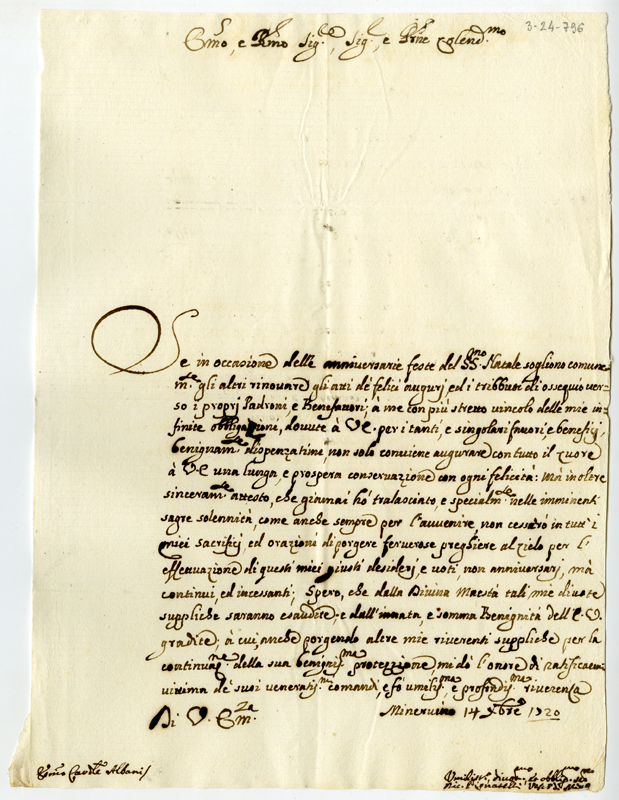 3-24-796
Emo, e Rmo Sig.re, Sig.r, e Prne Colend.mo
Se in occasione delle anniversarie feste del SS.mo Natale sogliono comune
m.te gli altri rinovare gli atti de felici augurj, ed i tributi di ossequio ver=
so i proprj Padroni, e Benefattori; à me con più stretto vincolo delle mie in=
finite obbligazioni, dovute à V.E. per i tanti, e singolari favori, e beneficj
benignam.te dispenzatimi, non solo conviene augurare con tutto il cuore
à V.E. una lunga, e prospera conservazione con ogni felicità: mà inoltre
sinceram.te attesto, che giammai hò tralasciato, e specialm.te nelle imminenti
sagre solennità, come anche sempre per l'avvenire, non cessarò in tutt' i
miei sacrificj, ed orazioni di porgere fervorose preghiere al cielo per l'
effettuazione di questi miei giusti desiderj, e voti, non anniversarj, mà
continui, ed incessanti; Spero, che dalla Divina Maestà tali mie divote
suppliche saranno esaudite, e dall'innata, e somma Benignità dell'E.V.
gradite; à cui, anche porgendo altre mie riverenti suppliche per la
continuaz.ne della sua benigniss.ma protezzione mi dò l'onore di ratificarmi
vittima de suoi veneratis.mi comandi, e fò umilis.ma, e profondis.ma riverenza
Di V. Em.za Minervino 14 Xbre 1720
Emo Card.le Albani
Umiliss.o, divo.mo, ed obblig.mo